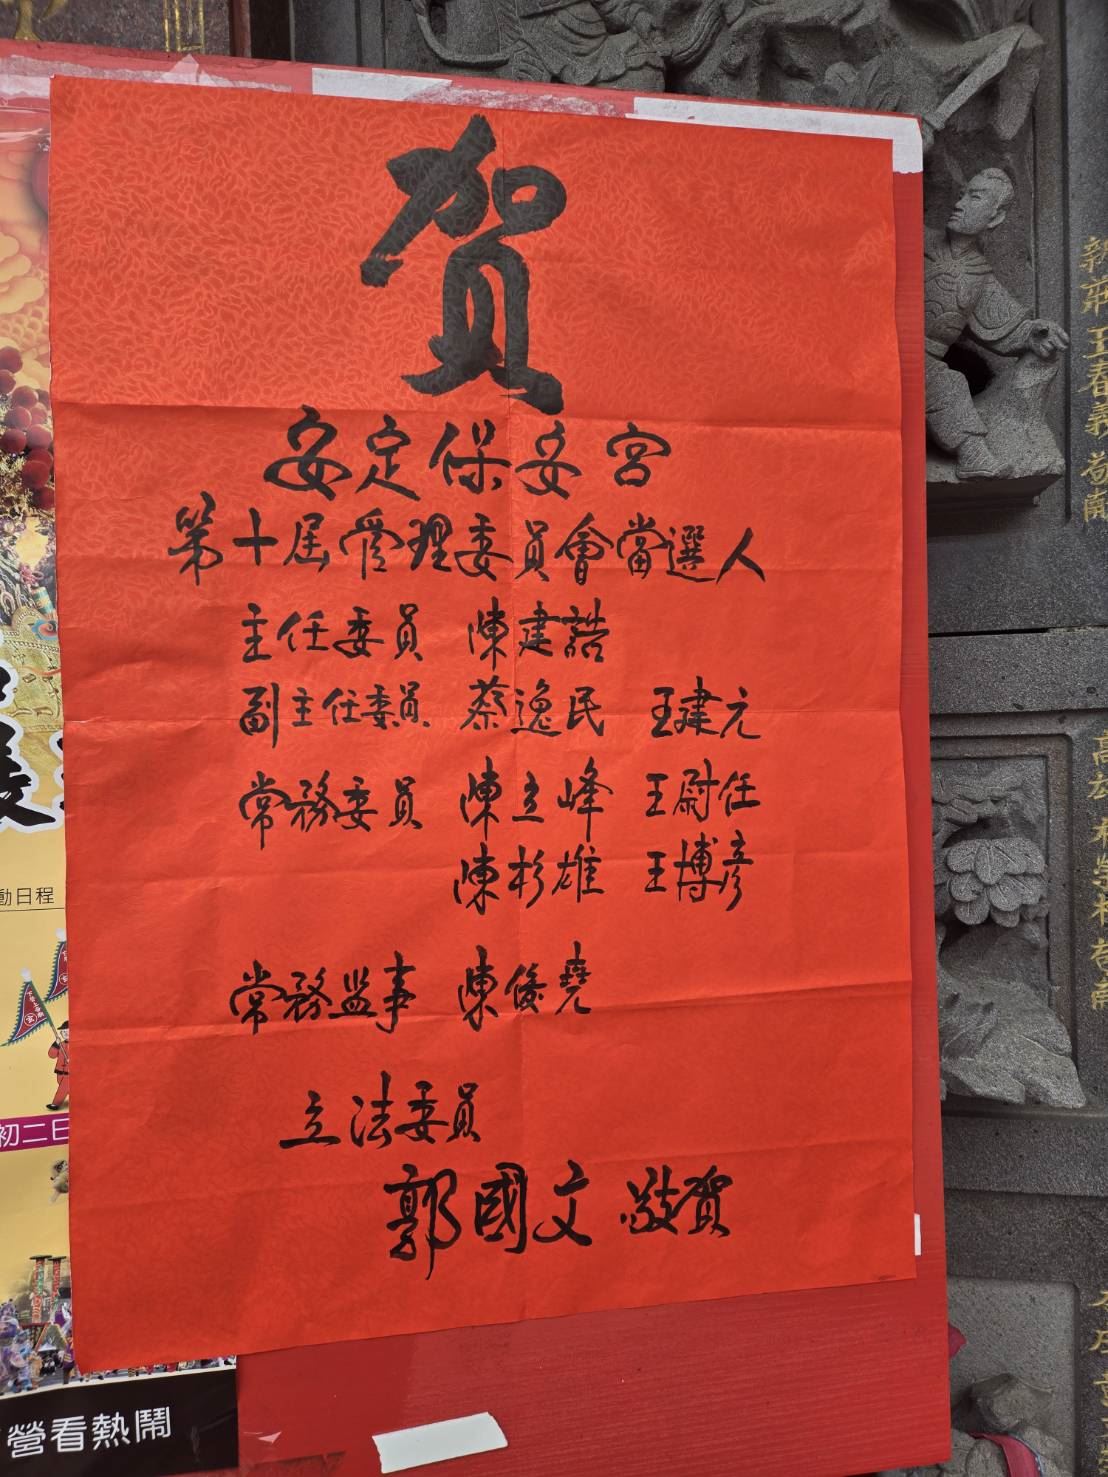 賀
安定保安宮
第十屆管理委員會當選人
主任委員 陳建誥
副主任委員 蔡逸民 王建元
常務委員 陳立峰 王尉任
陳杉雄 王博彥
常務監事 陳俊堯
立法委員
郭國文 敬賀
動日程
初二日
營看熱鬧
新莊五春義敬獻